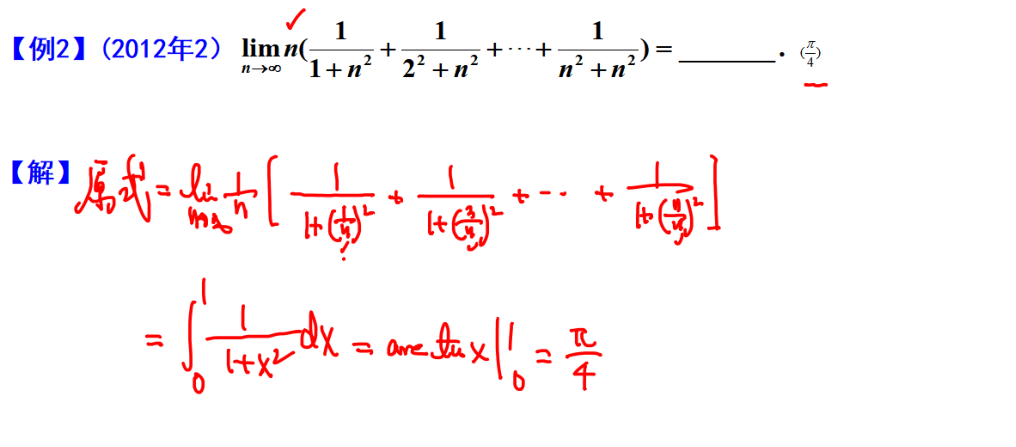 【例2】(2012年2) lim n→∞ n(1/(1+n²) + 1/(2²+n²) + ⋯ + 1/(n²+n²)) = ______. (π/4)
【解】原式 = lim n→∞ 1/n [1/(1+(1/n)²) + 1/(1+(2/n)²) + ⋯ + 1/(1+(n/n)²)]
= ∫₀¹ 1/(1+x²) dx = arctan x |₀¹ = π/4